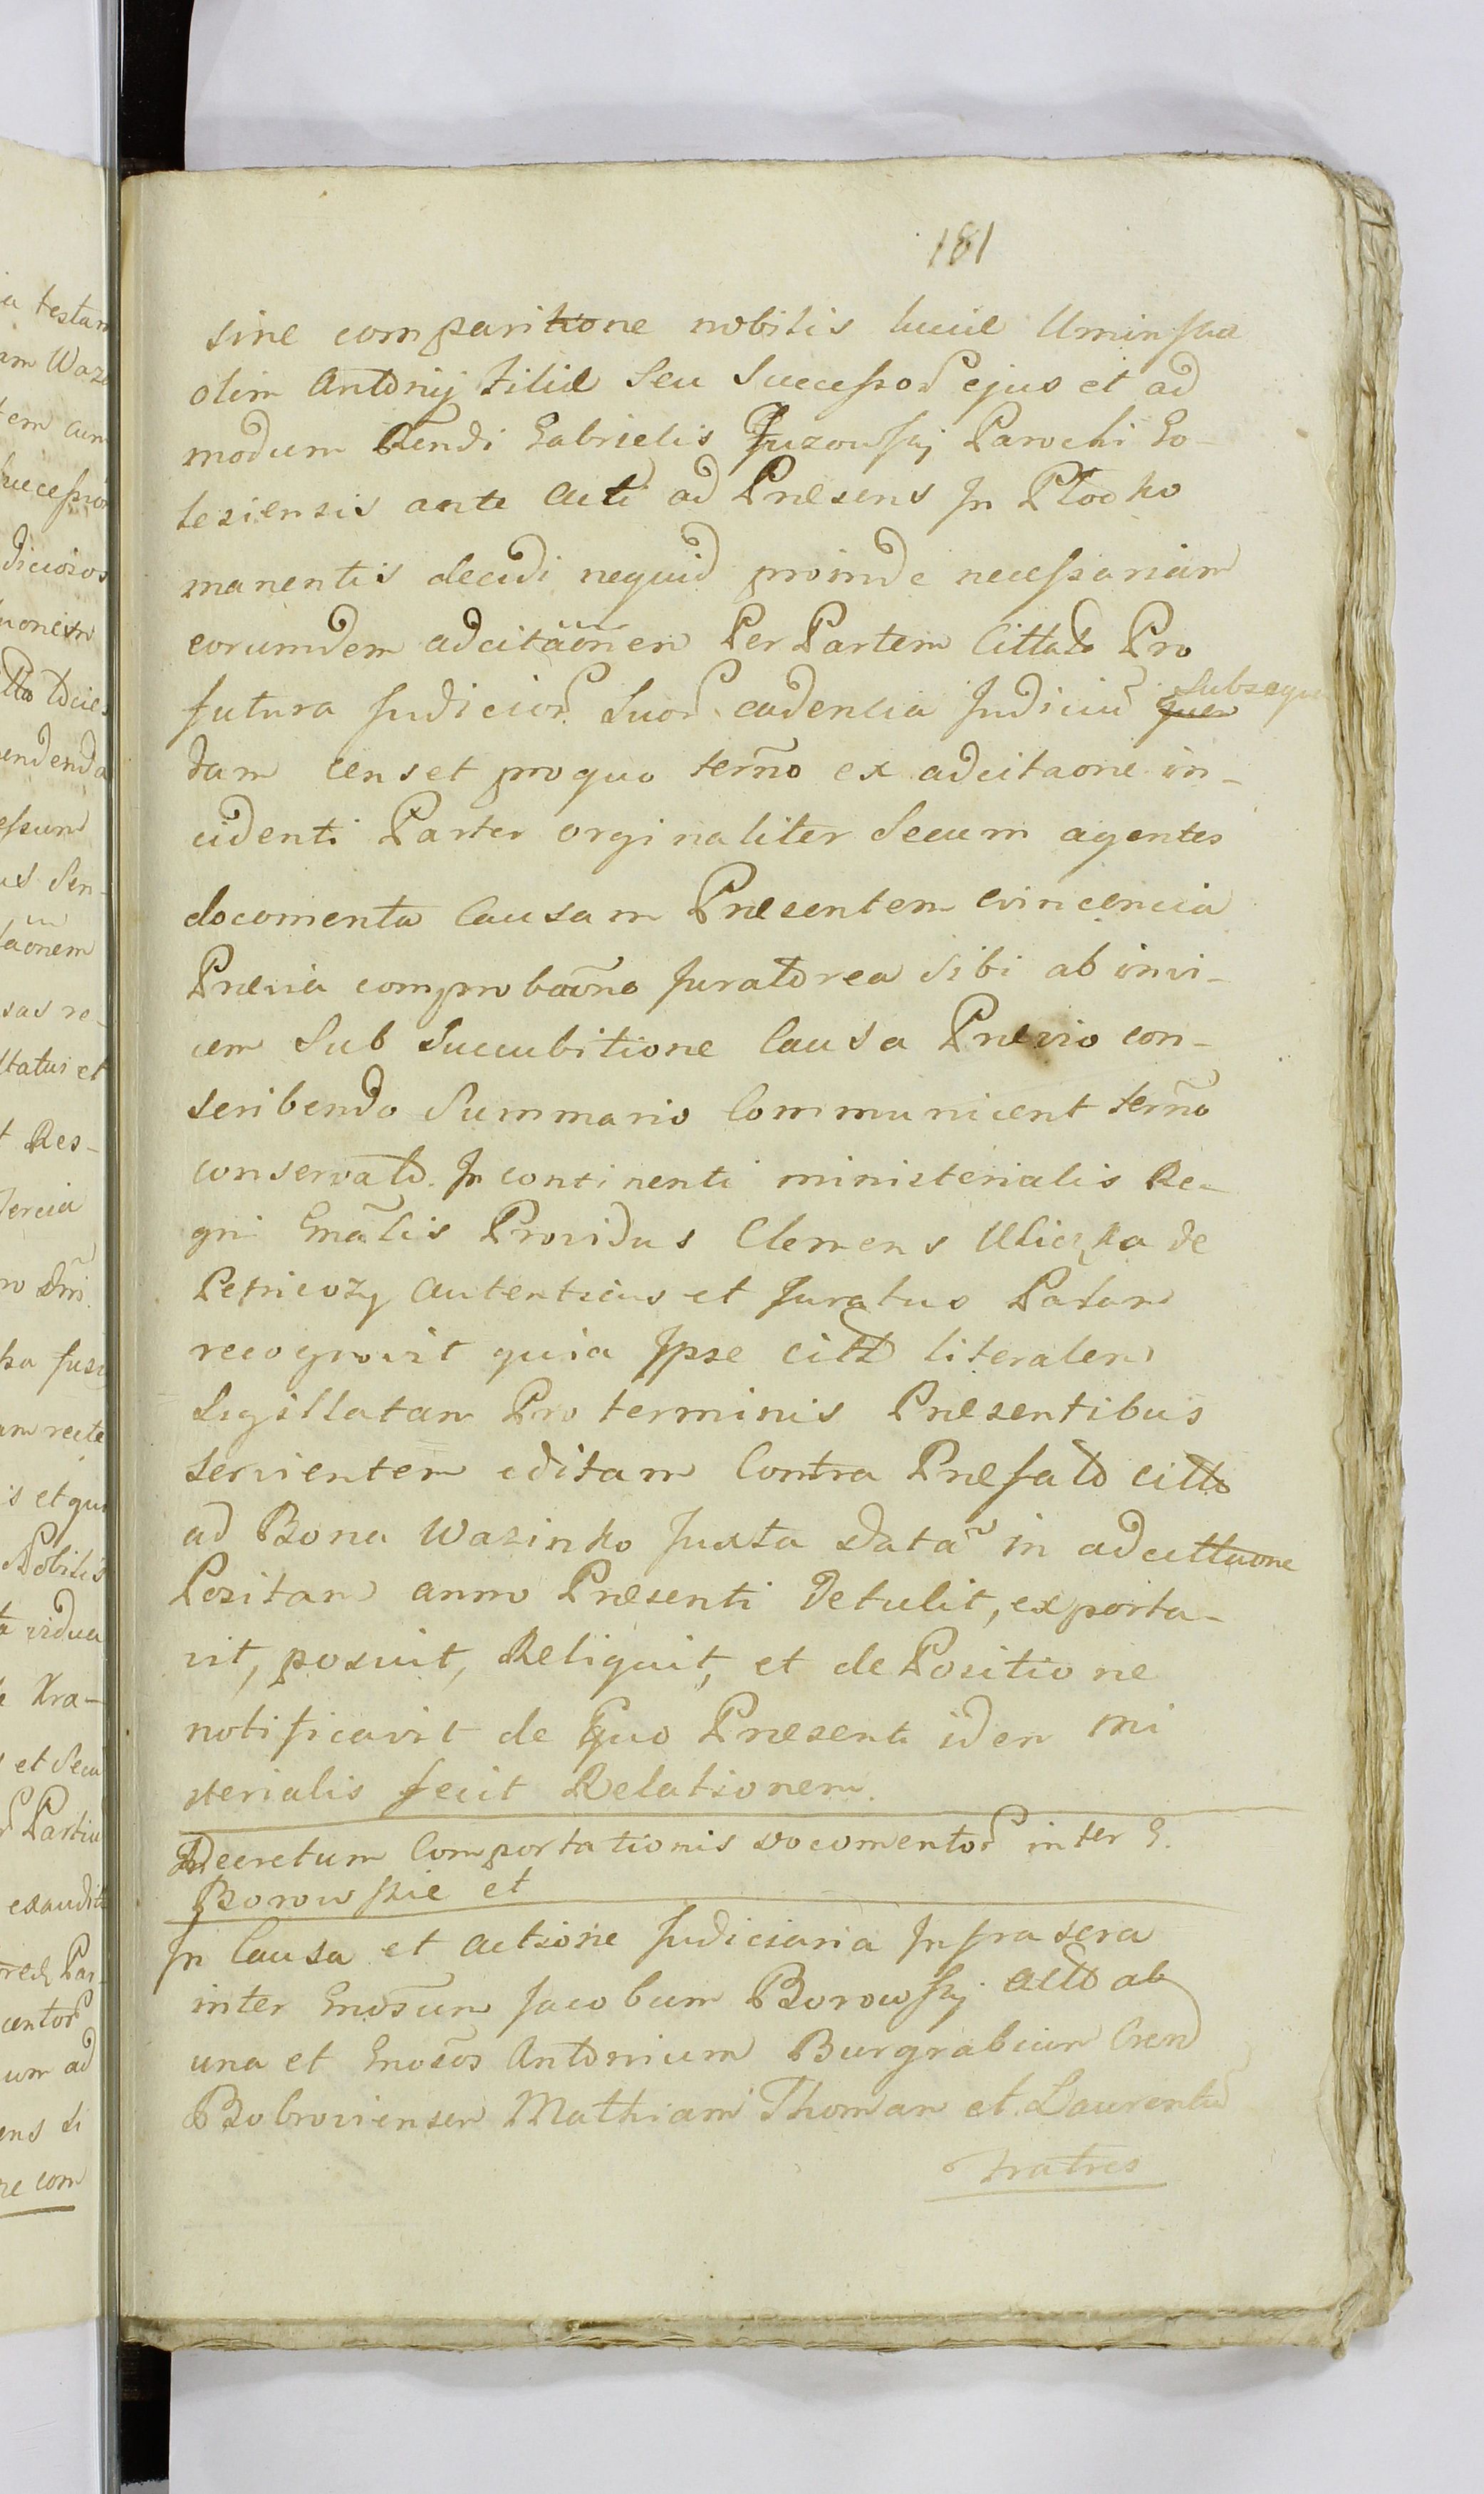 181
sine comparitione nobilis Luciæ Uminska
olim Antonij filiæ seu Successor ejus et ad
modum Rendi Gabrielis Juzowskj Parochi Go-
lesiensis ante Acti ad Præsens in Plocko
manentis decidi nequid proinde necessariam
eorumdem adcitãonem Per Partem Cittato Pro
futura Judicior Suor cadencia Judiciũ subseque
dam censet pro quo termo ex adcitaone in-
cidenti Partes orginaliter Secum agentes
documenta Causam Præsentem evincencia
Prævia comprobaõne Juratorea Sibi ab invi-
cem Sub Succubitione Causa Prævio con-
scribendo Summario Communicent termo
conservato. In continenti ministerialis Re-
gni Gnãlis Providus Clemens Uliczka de
Petricozy Autenticus et Juratus Palam
recognovit quia Ipse citt literalem
Sigillatam Pro terminis Præsentibus
servientem editam Contra Præfato citto
ad Bona Wazinko Juxta Datã in adcittaone
Positam anno Præsenti Detulit, exporta-
vit, posuit, Reliquit, et de Positione
notificavit de quo Præsenti idem mi
sterialis fecit Relationem.
Decretum Comportationis Documentor inter G.
Borowskie et
In Causa et Actione Judiciaria Infrascra
inter Gnosum Jacobum Borowskj Actõ ab
una et Gnosos Antonium Burgrabium Cren
Bobroviensem Mathiam Thomam et Laurentiũ
Fratres
a testam
am Waz
tem cum
successio
diciosos
endenda
us Sen-
aonem
sas re-
statui et
t Res-
am recte
is et qu
Nobilis
a vidua
Kra-
et Secu
Partiu
exaudit
Par-
centor
um ad
ens si
ne com